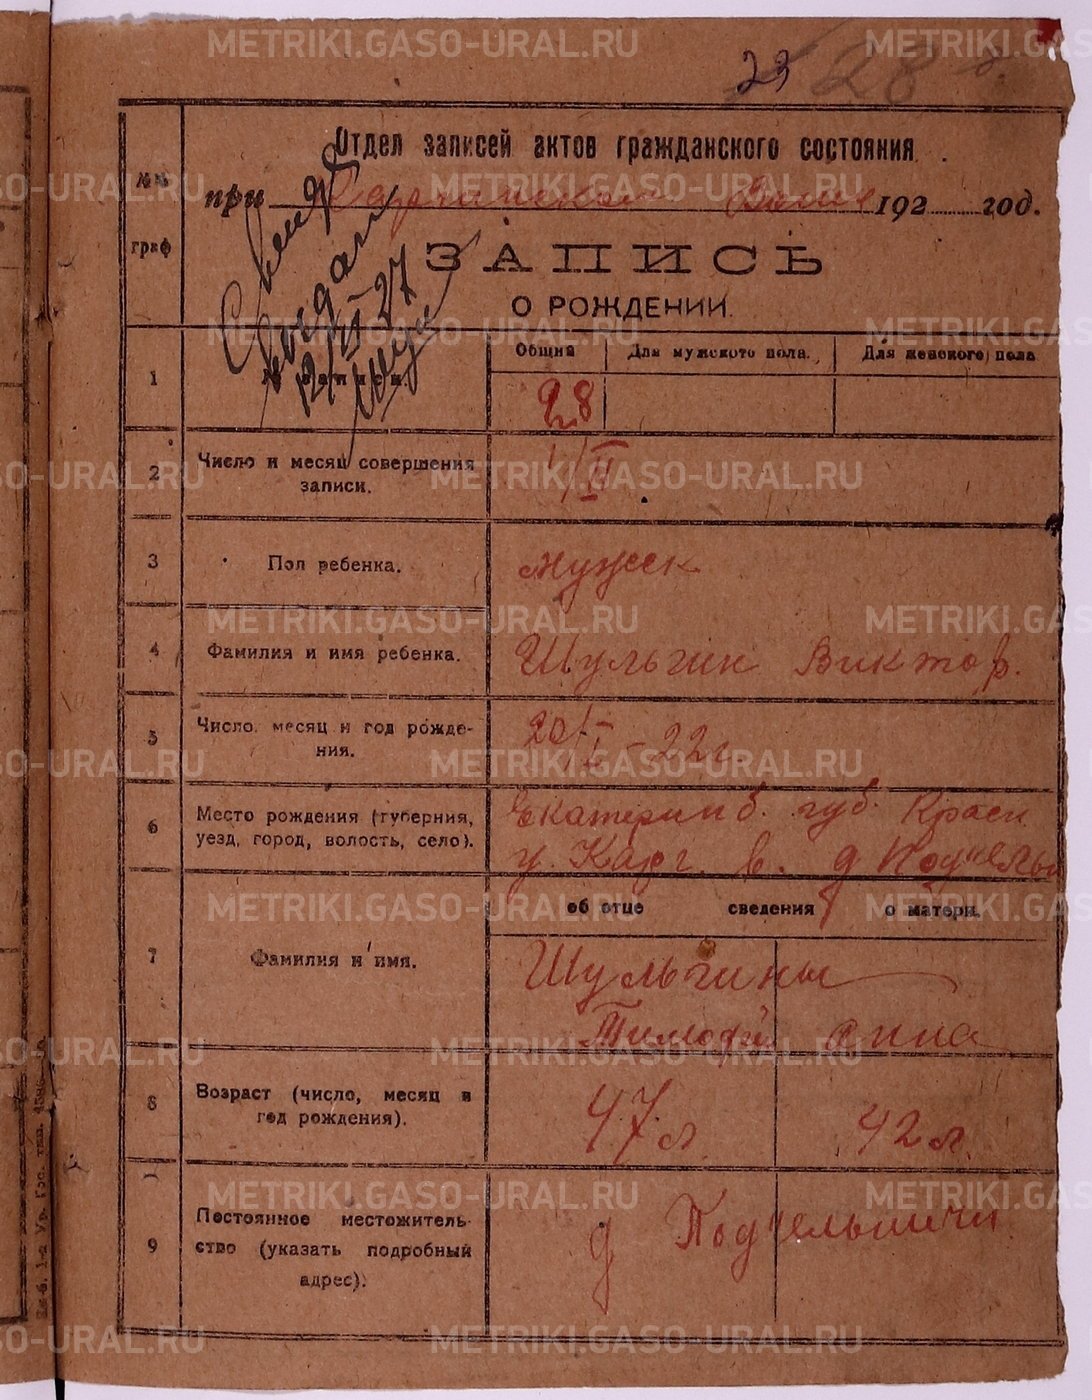 23 28
Отдел записей актов гражданского состояния
№№
граф
при 192 год.
ЗАПИСЬ
О РОЖДЕНИИ.
выдано
12/VI-27
Общий Для мужского пола. Для женского пола
1 № записи. 28
2 Число и месяц совершения 1/II
записи.
3 Пол ребенка. мужск
4 Фамилия и имя ребенка. Шульгин Виктор.
5 Число, месяц и год рожде- 20/I-22г.
ния.
6 Место рождения (губерния, Екатеринб. губ. Красн
уезд, город, волость, село). у. Карг. в. д
об отце сведения о матери.
7 Фамилия и имя. Шульгины
Тимофей Анна
8 Возраст (число, месяц и
год рождения). 47 л. 42 л.
9 Постоянное местожитель-
ство (указать подробный д
адрес).
METRIKI.GASO-URAL.RU